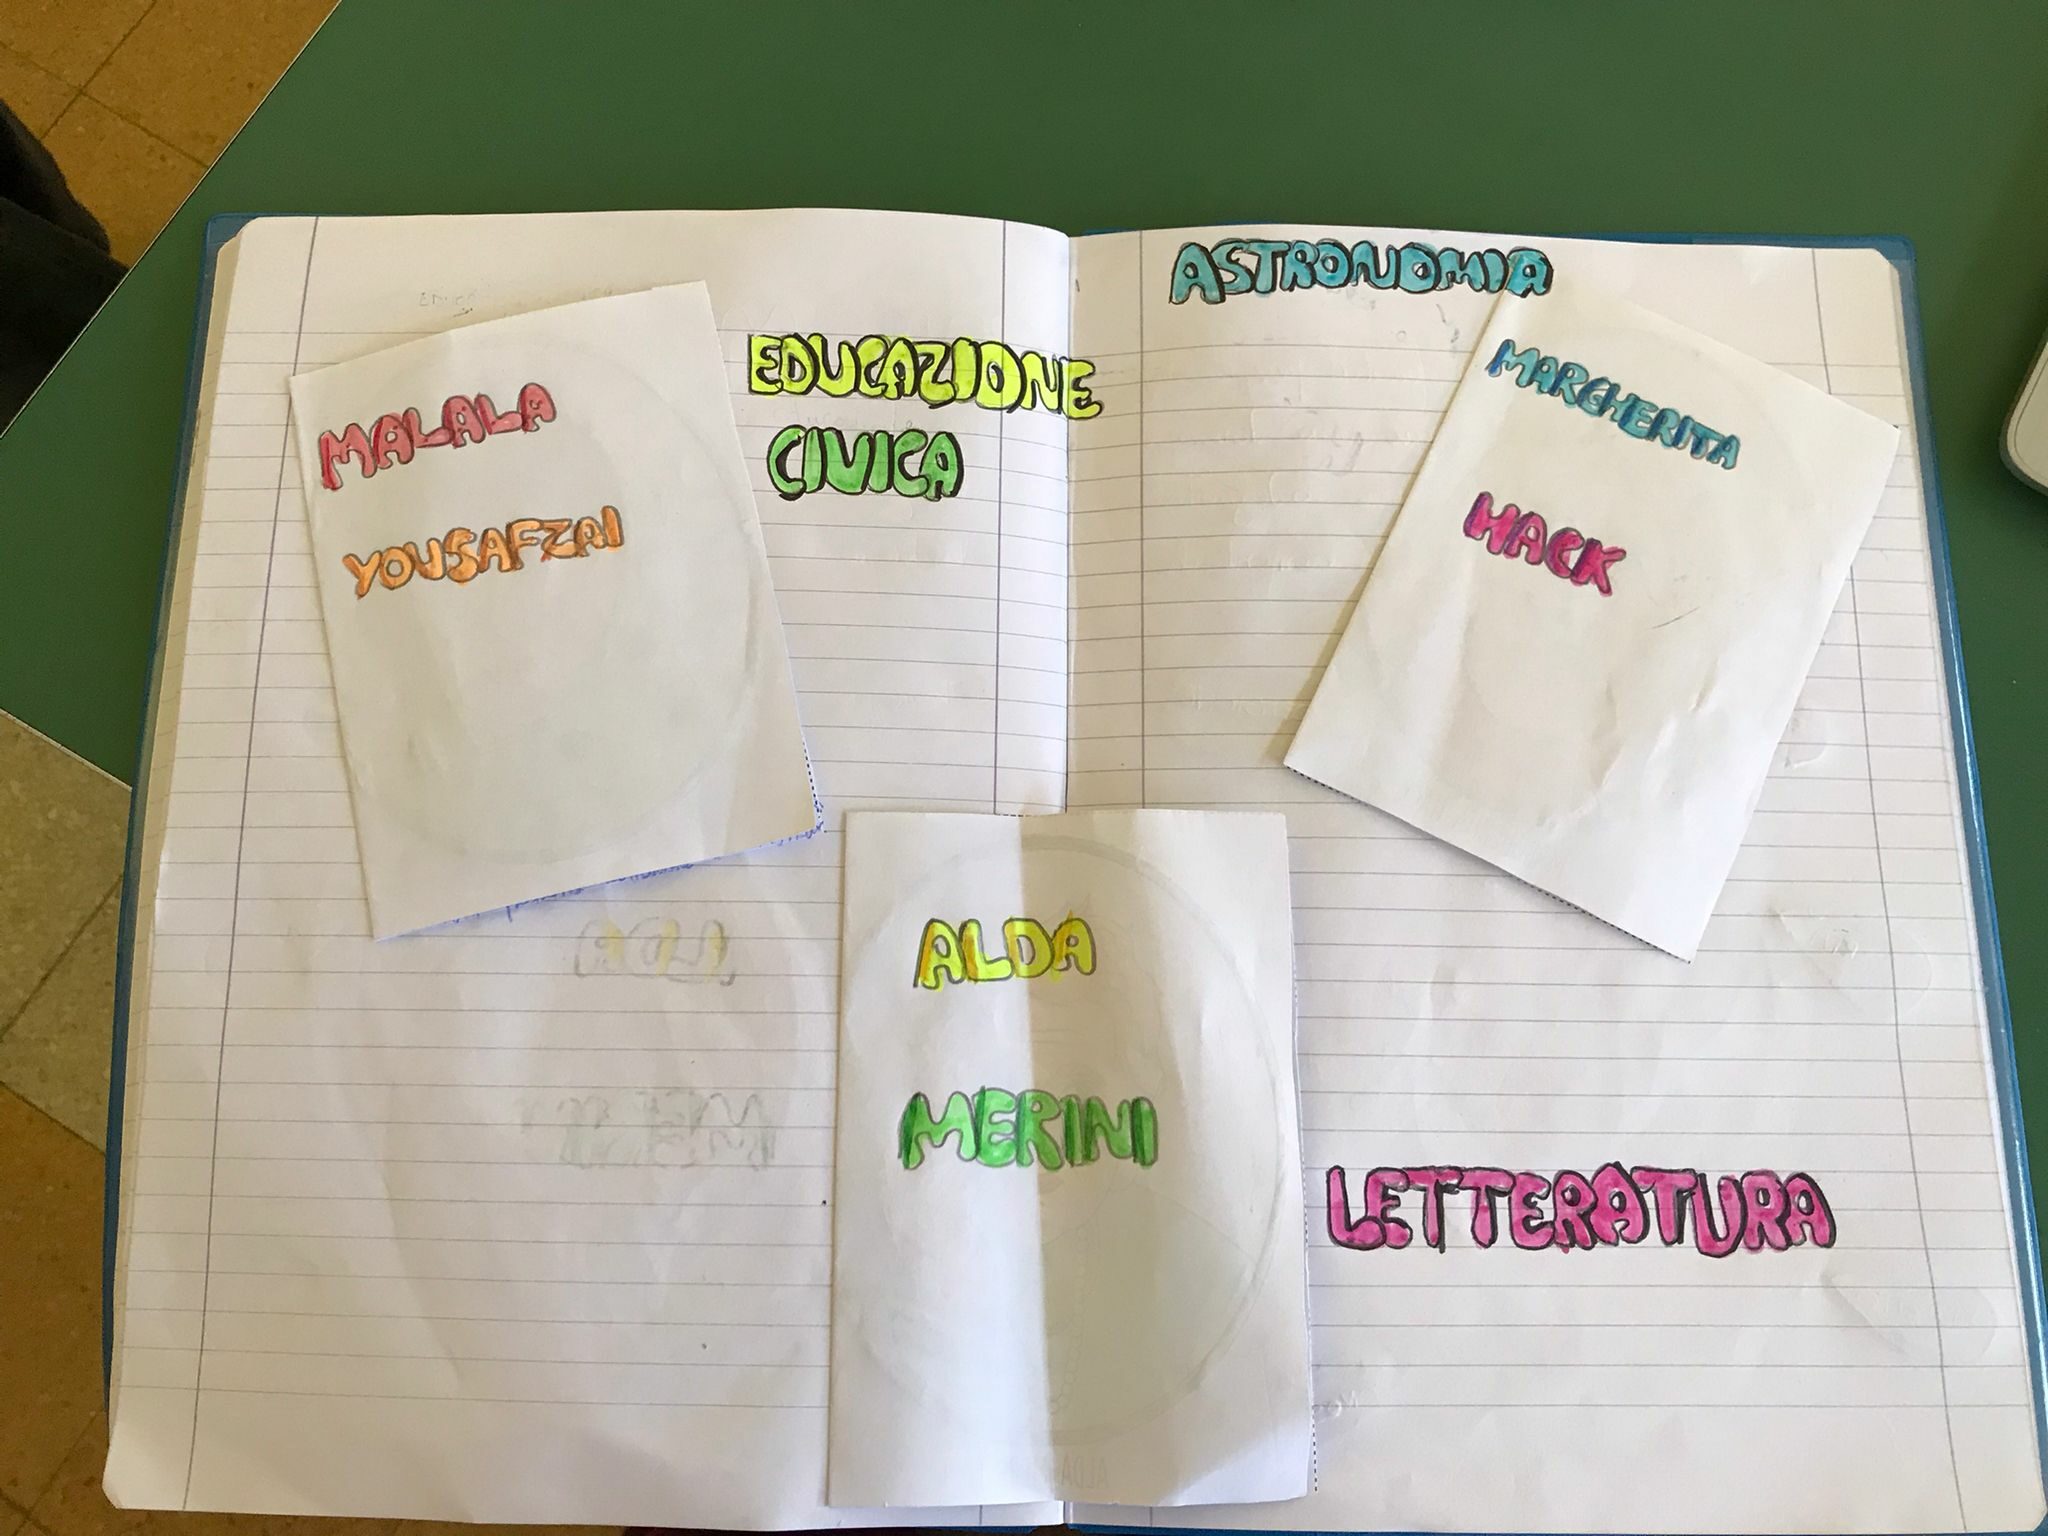 MALALA
YOUSAFZAI
EDUCAZIONE
CIVICA
ASTRONOMIA
MARGHERITA
HACK
ALDA
MERINI
LETTERATURA